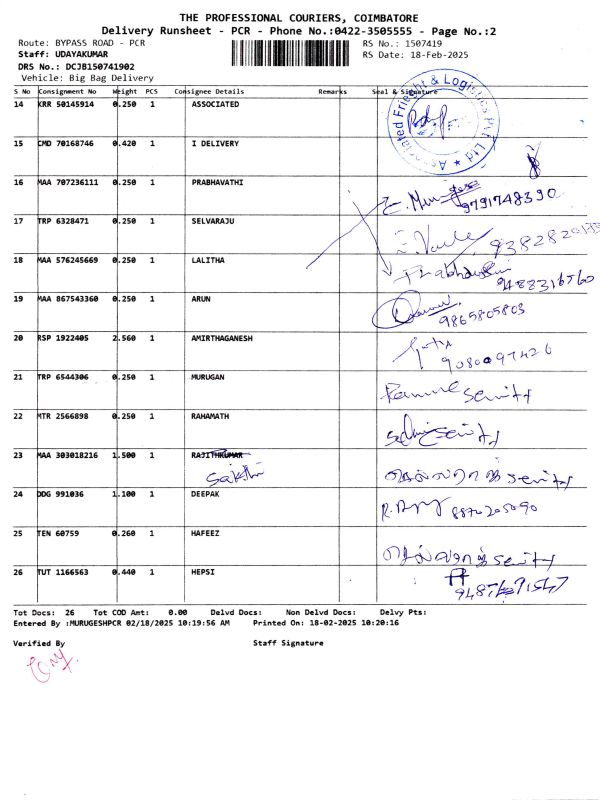 THE PROFESSIONAL COURIERS, COIMBATORE
Delivery Runsheet - PCR - Phone No.:0422-3505555 - Page No.:2
Route: BYPASS ROAD - PCR RS No.: 1507419
Staff: UDAYAKUMAR RS Date: 18-Feb-2025
DRS No.: DCJB150741902
Vehicle: Big Bag Delivery
S No Consignment No Weight PCS Consignee Details Remarks Seal & Signature
14 KRR 50145914 0.250 1 ASSOCIATED
Associated Frieght & Logistics Pvt Ltd ★
15 CMD 70168746 0.420 1 I DELIVERY
16 MAA 707236111 0.250 1 PRABHAVATHI
9791748390
17 TRP 6328471 0.250 1 SELVARAJU
18 MAA 576245669 0.250 1 LALITHA
9488316560
19 MAA 867543360 0.250 1 ARUN
9865805803
20 RSP 1922405 2.560 1 AMIRTHAGANESH
21 TRP 6544306 0.250 1 MURUGAN
22 MTR 2566898 0.250 1 RAHAMATH
23 MAA 303018216 1.500 1 RAJITHKUMAR
Sakthi
24 DDG 991036 1.100 1 DEEPAK
8870205090
25 TEN 60759 0.260 1 HAFEEZ
26 TUT 1166563 0.440 1 HEPSI
Tot Docs: 26 Tot COD Amt: 0.00 Delvd Docs: Non Delvd Docs: Delvy Pts:
Entered By :MURUGESHPCR 02/18/2025 10:19:56 AM Printed On: 18-02-2025 10:20:16
Verified By Staff Signature